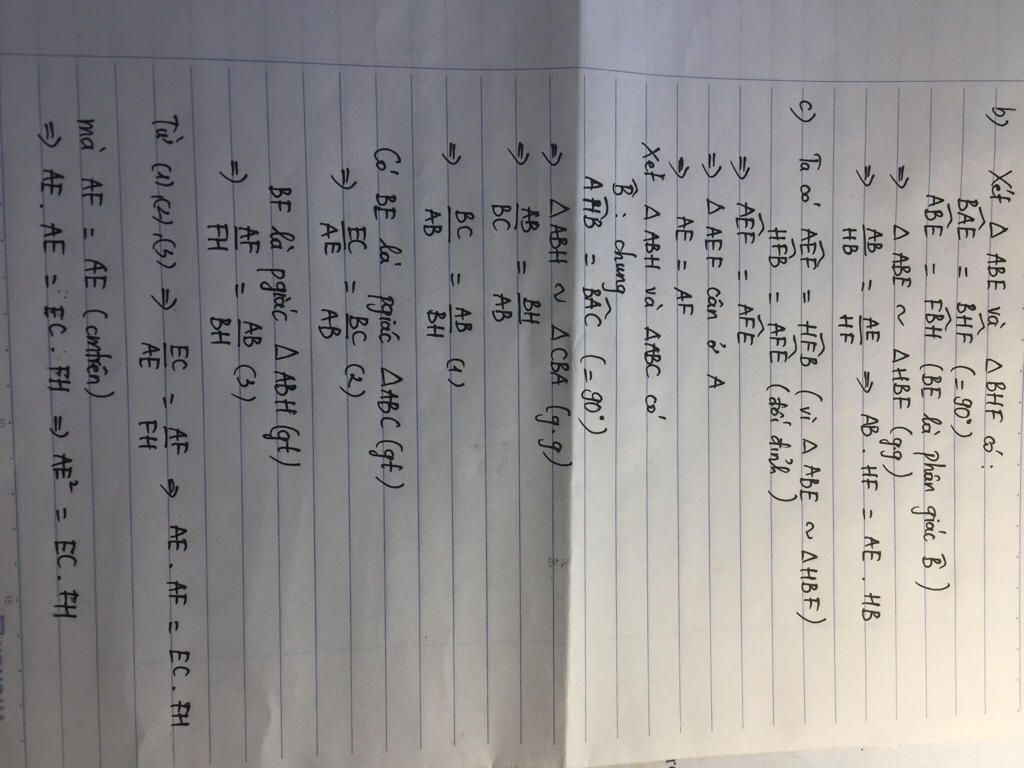 b) Xét △ ABE và △ BHF có:
B̂AE = B̂HF (= 90°)
ÂBE = F̂BH (BE là phân giác B̂)
⇒ △ ABE ~ △ HBF (gg)
⇒ AB/HB = AE/HF ⇒ AB . HF = AE . HB
c) Ta có ÂEF = ĤFB (vì △ ABE ~ △ HBF)
ĤFB = ÂFE (đối đỉnh)
⇒ ÂEF = ÂFE
⇒ △ AEF cân ở A
⇒ AE = AF
Xét △ ABH và △ABC có
B̂ : chung
AĤB = BÂC (= 90°)
⇒ △ ABH ~ △ CBA (g.g)
⇒ AB/BC = BH/AB
⇒ BC/AB = AB/BH (1)
Có BE là pgiác △ ABC (gt)
⇒ EC/AE = BC/AB (2)
BF là pgiác △ ABH (gt)
⇒ AF/FH = AB/BH (3)
Từ (1) (2) (3) ⇒ EC/AE = AF/FH ⇒ AE . AF = EC . FH
mà AF = AE (cmtrên)
⇒ AE . AE = EC . FH ⇒ AE² = EC . FH